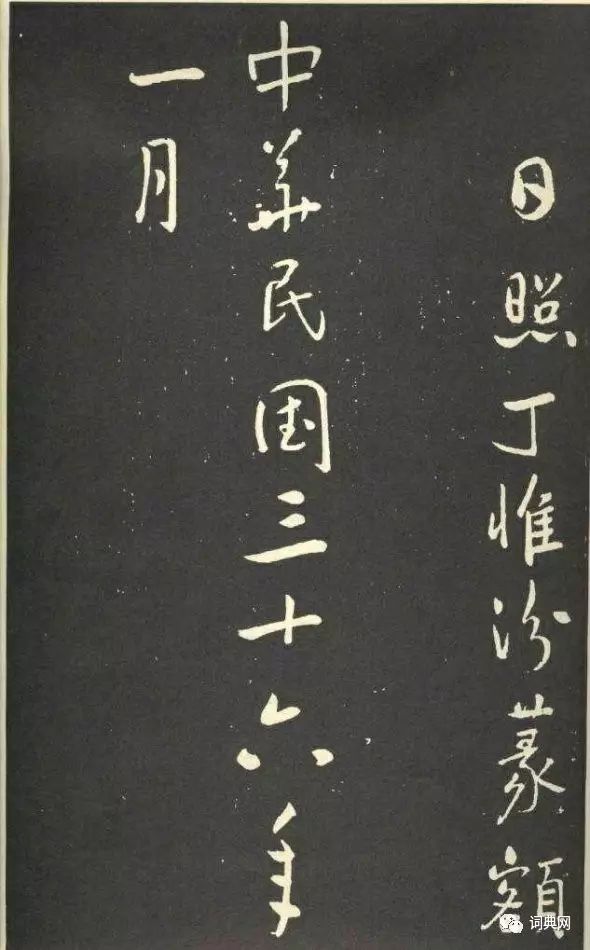 日照丁惟汾篆額
中華民国三十六年
一月
词典网